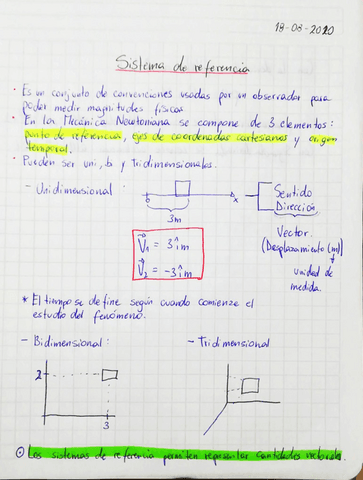 18-08-2020
Sistema de referencia
• Es un conjunto de convenciones usadas por un observador para
poder medir magnitudes físicas
• En la Mecánica Newtoniana se compone de 3 elementos:
punto de referencia, ejes de coordenadas cartesianos y origen
temporal.
• Pueden ser uni, bi y Tridimensionales.
- Unidimensional:
0
x
3m
Sentido
Dirección
Vector.
(Desplazamiento (m))
unidad de
medida.
V₁ = 3î m
V₂ = -3î m
* El tiempo se define según cuando comienze el
estudio del fenómeno.
- Bidimensional:
2
3
- Tridimensional
Los sistemas de referencia permiten representar cantidades vectoriales.